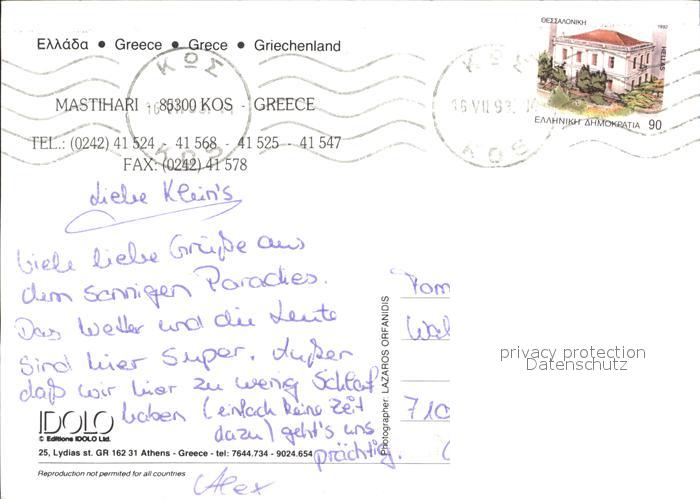 Ελλάδα ● Greece ● Grece ● Griechenland
ΘΕΣΣΑΛΟΝΙΚΗ
1992
HELLAS
ΕΛΛΗΝΙΚΗ ΔΗΜΟΚΡΑΤΙΑ 90
ΚΩΣ
ΚΩΣ
16 VII 93
ΚΩΣ
ΚΩΣ
MASTIHARI - 85300 KOS - GREECE
TEL.: (0242) 41 524 - 41 568 - 41 525 - 41 547
FAX: (0242) 41 578
Liebe Klein's
Viele liebe Grüße aus
dem sonnigen Paradies.
Das Wetter und die Leute
sind hier super. Außer
daß wir hier zu wenig Schlaf
haben (einfach keine Zeit
dazu) geht's uns
prächtig.
Alex
Photographer: LAZAROS ORFANIDIS
710
privacy protection
Datenschutz
IDOLO
© Editions IDOLO Ltd.
25, Lydias st. GR 162 31 Athens - Greece - tel: 7644.734 - 9024.654
Reproduction not permited for all countries